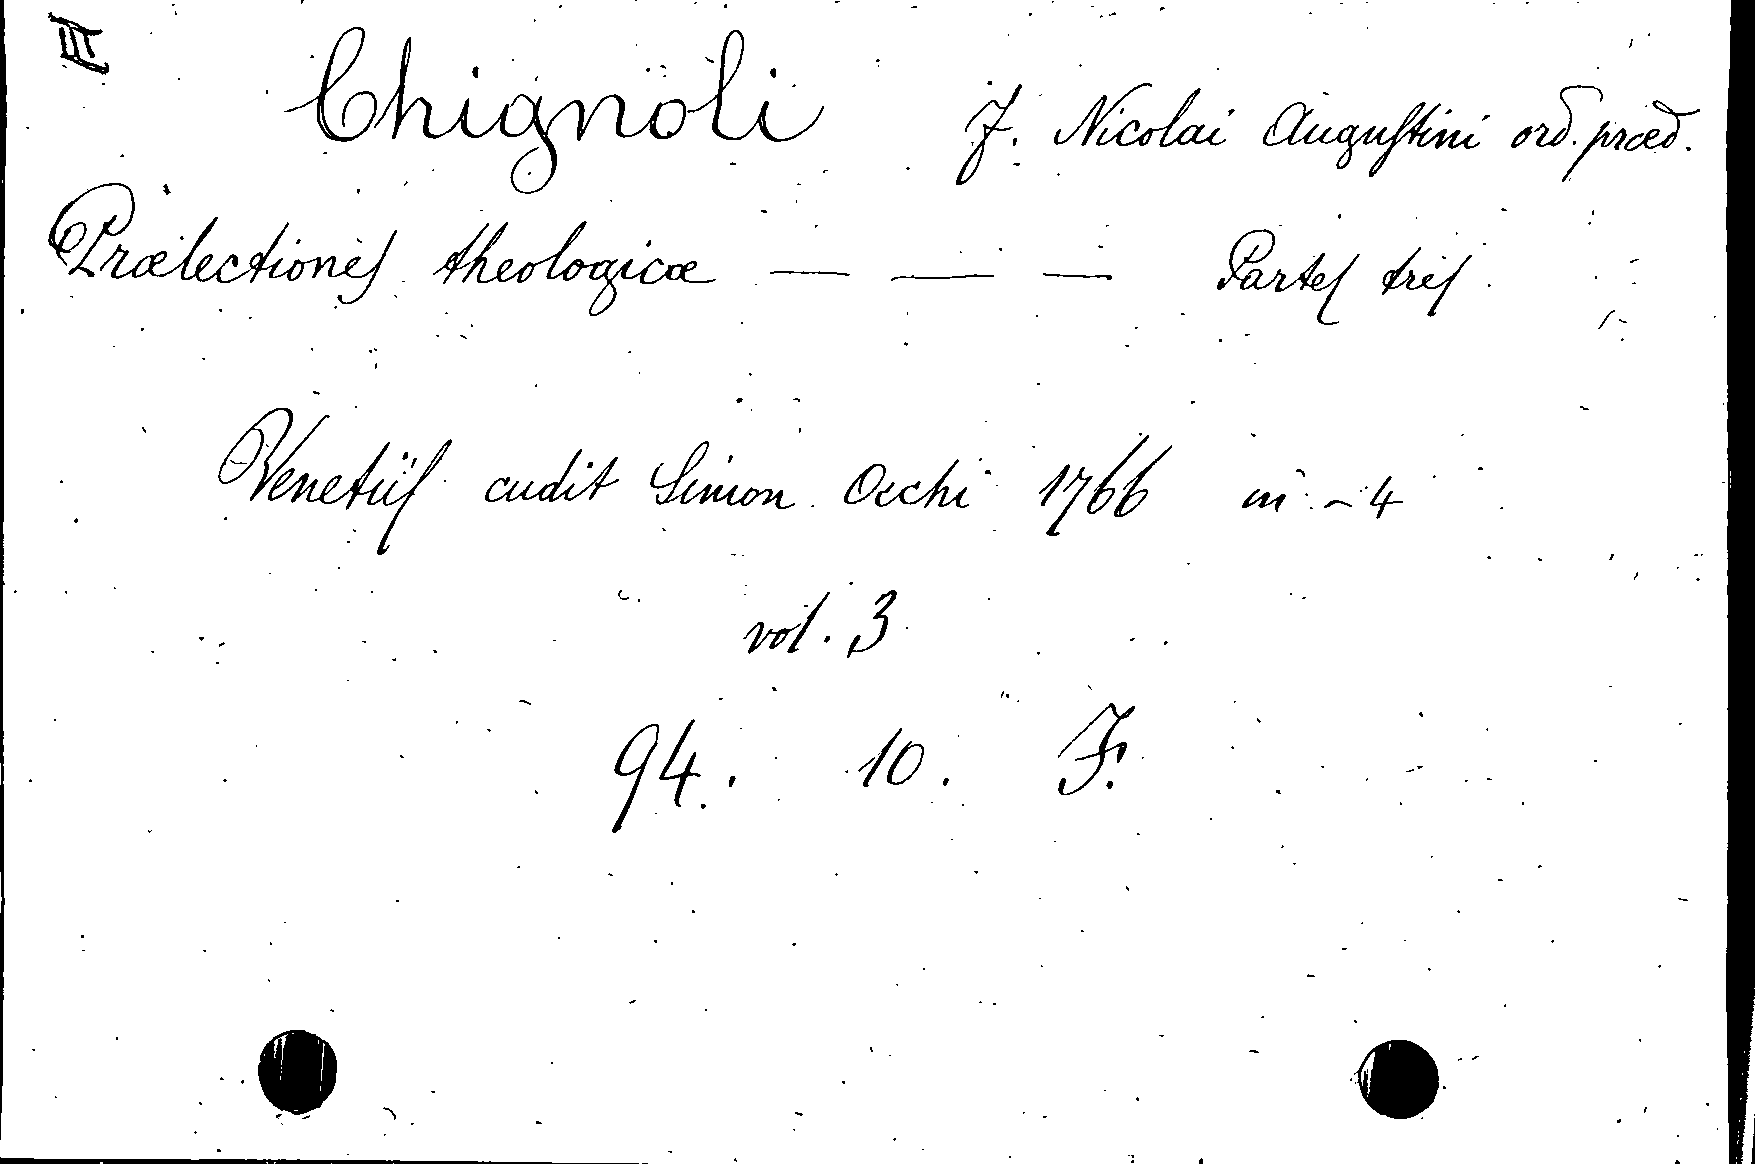 III
Chignoli F. Nicolai Augustini ord. præd.
Prælectiones theologicæ — — — Partes tres
Venetiis cudit Simon Occhi 1766 in - 4
vol. 3
94. 10. F.